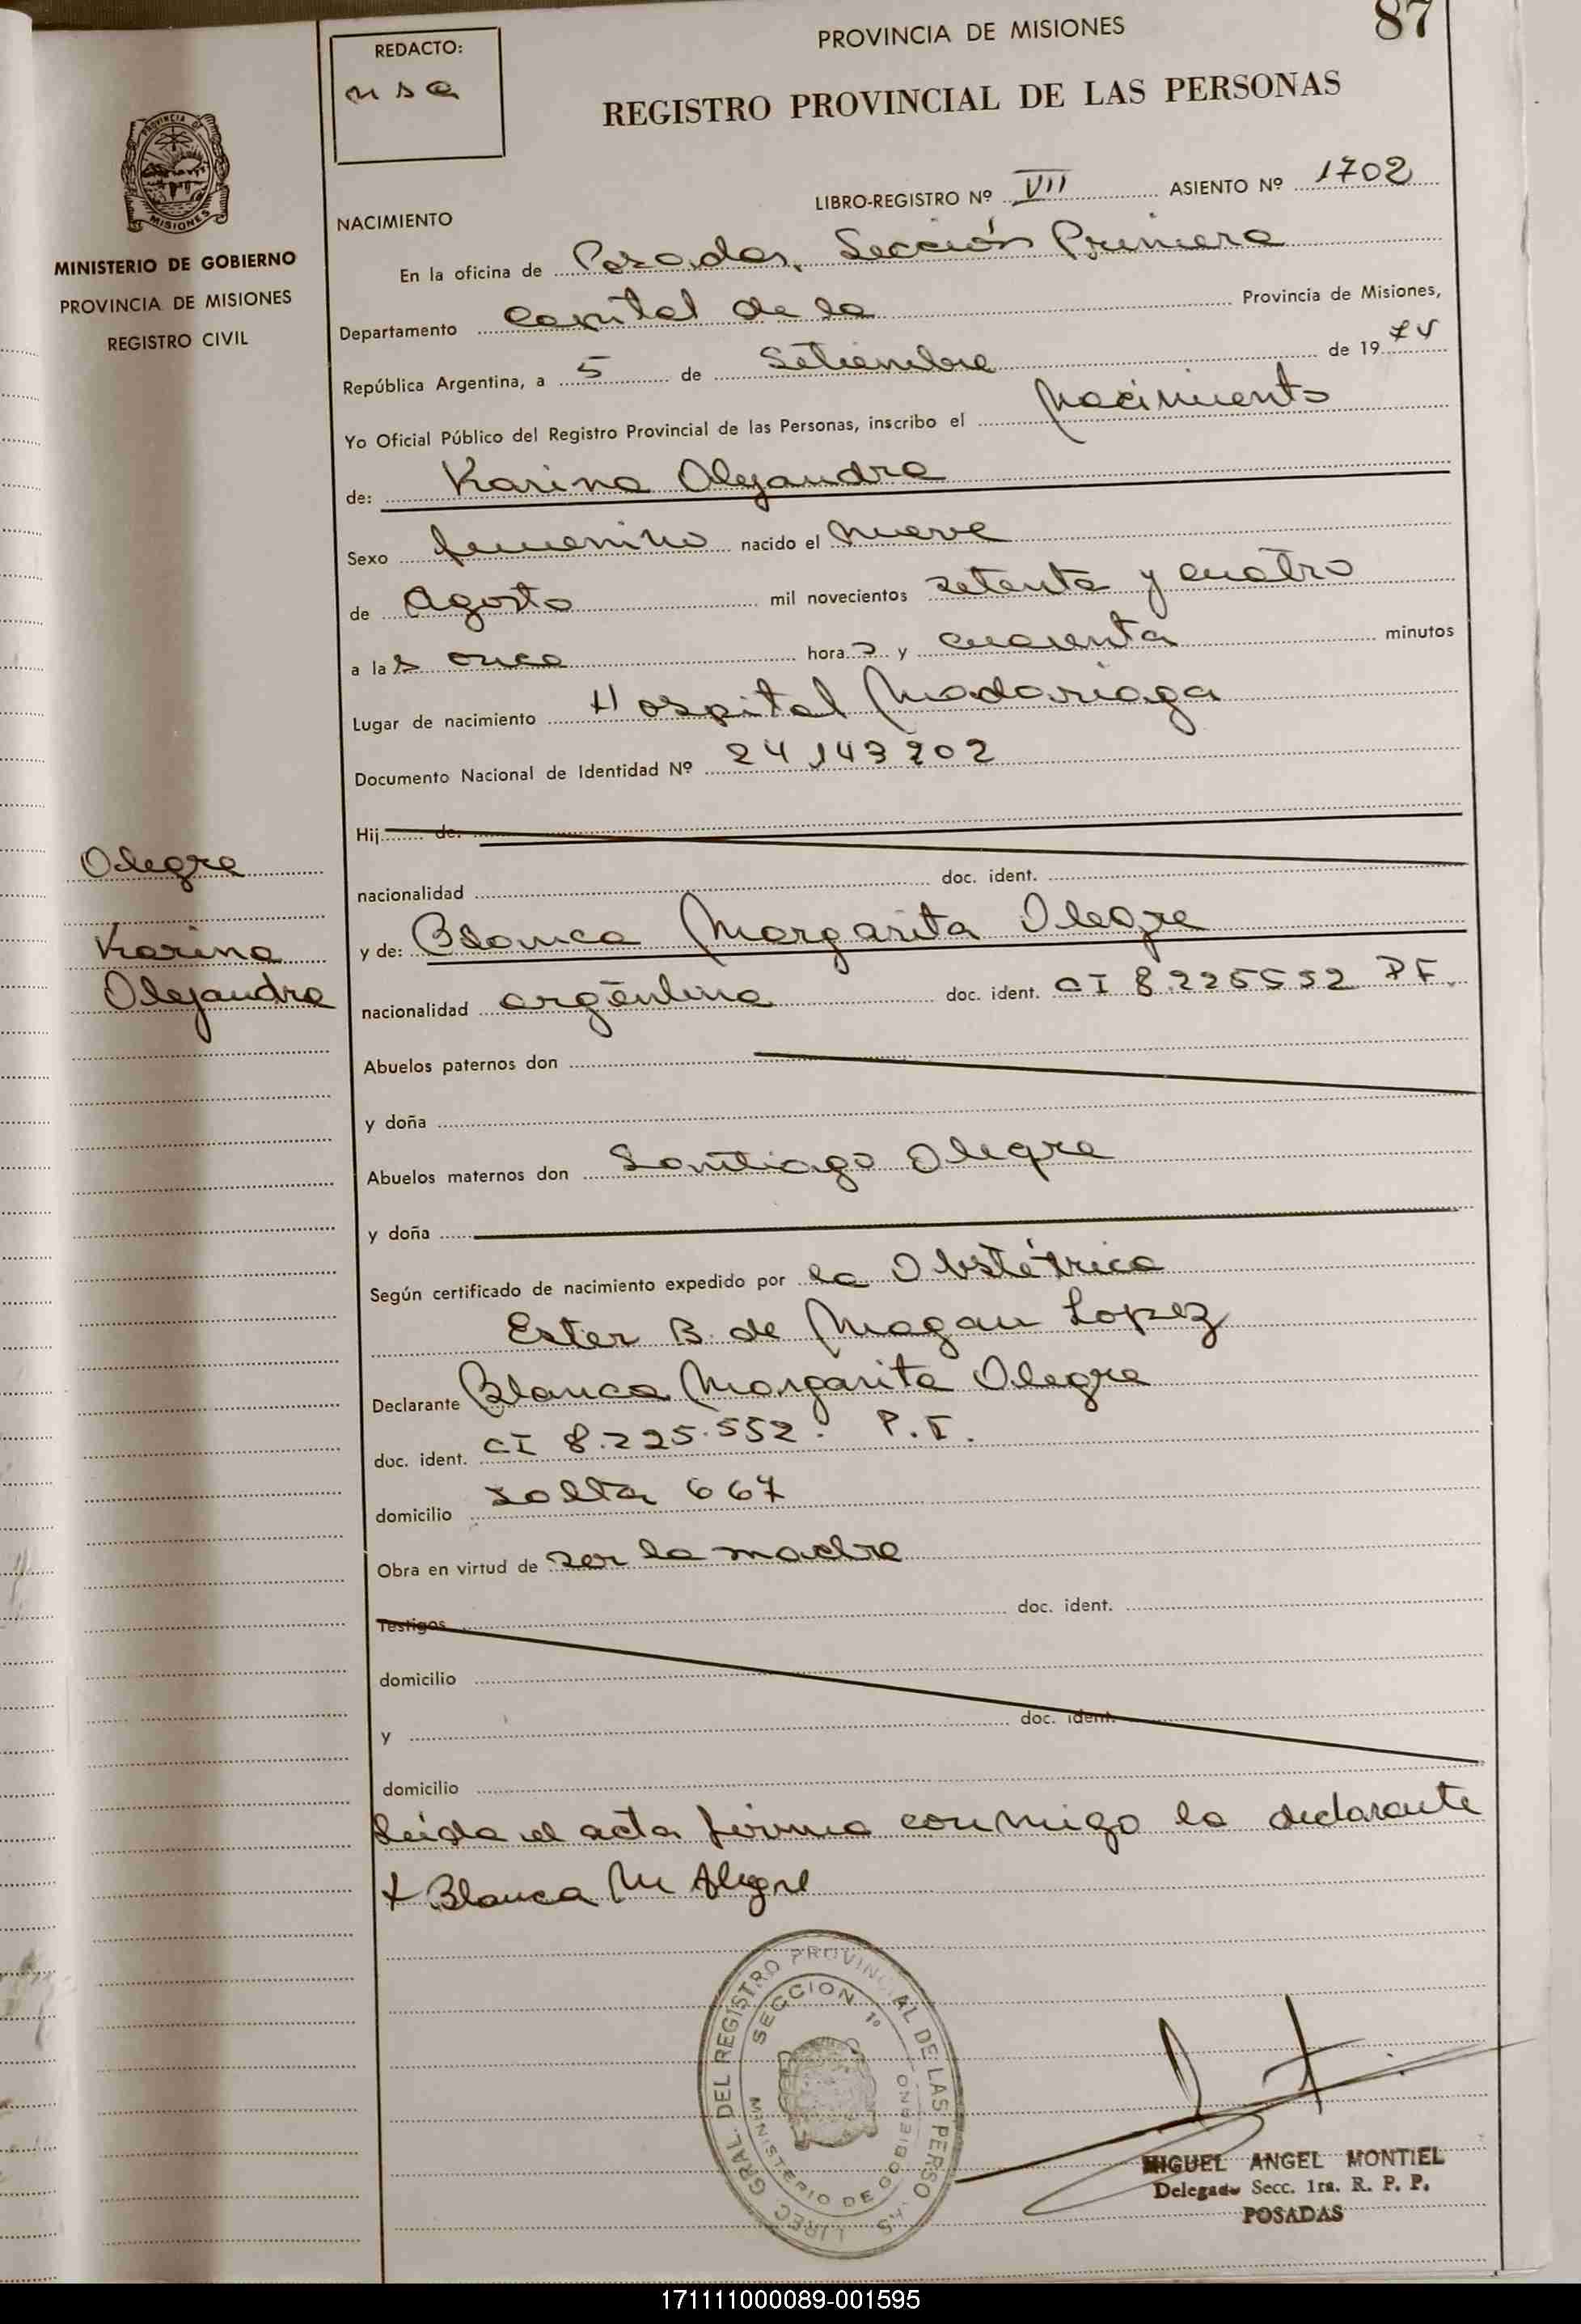 87
PROVINCIA DE MISIONES
REDACTO:
REGISTRO PROVINCIAL DE LAS PERSONAS
LIBRO-REGISTRO Nº VII ASIENTO Nº 1702
NACIMIENTO
PROVINCIA DE MISIONES
MINISTERIO DE GOBIERNO
PROVINCIA DE MISIONES
REGISTRO CIVIL
En la oficina de Posadas, Sección Primera
Departamento Capital de la Provincia de Misiones,
República Argentina, a 5 de Setiembre de 1974
Yo Oficial Público del Registro Provincial de las Personas, inscribo el Nacimiento
de: Karina Alejandra
Sexo femenino nacido el nueve
de Agosto mil novecientos setenta y cuatro
a las once horas y cuarenta minutos
Lugar de nacimiento Hospital Madariaga
Documento Nacional de Identidad Nº 24.143.202
Hij de:
nacionalidad doc. ident.
Alegre
Karina
Alejandra
y de: Blanca Margarita Alegre
nacionalidad argentina doc. ident. CI 8.225552 P F.
Abuelos paternos don
y doña
Abuelos maternos don Santiago Alegre
y doña
Según certificado de nacimiento expedido por la Obstétrica
Ester B. de Magan Lopez
Declarante Blanca Margarita Alegre
doc. ident. CI 8.225.552. P.F.
domicilio Salta 667
Obra en virtud de ser la madre
Testigos doc. ident.
domicilio
y doc. ident.
domicilio
Leida el acta firma conmigo la declarante
Blanca M Alegre
DIREC. GRAL. DEL REGISTRO PROVINCIAL DE LAS PERSONAS
SECCION 1º
MINISTERIO DE GOBIERNO
MIGUEL ANGEL MONTIEL
Delegado Secc. 1ra. R. P. P.
POSADAS
171111000089-001595